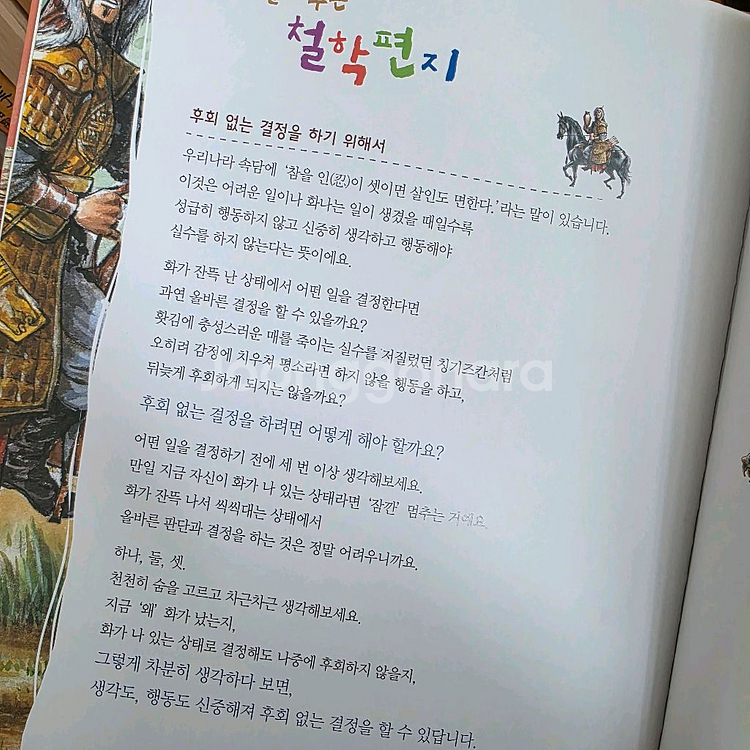 철학편지
후회 없는 결정을 하기 위해서
우리나라 속담에 ‘참을 인(忍)이 셋이면 살인도 면한다.’라는 말이 있습니다.
이것은 어려운 일이나 화나는 일이 생겼을 때일수록
성급히 행동하지 않고 신중히 생각하고 행동해야
실수를 하지 않는다는 뜻이에요.
화가 잔뜩 난 상태에서 어떤 일을 결정한다면
과연 올바른 결정을 할 수 있을까요?
홧김에 충성스러운 매를 죽이는 실수를 저질렀던 칭기즈칸처럼
오히려 감정에 치우쳐 평소라면 하지 않을 행동을 하고,
뒤늦게 후회하게 되지는 않을까요?
후회 없는 결정을 하려면 어떻게 해야 할까요?
어떤 일을 결정하기 전에 세 번 이상 생각해보세요.
만일 지금 자신이 화가 나 있는 상태라면 ‘잠깐’ 멈추는 거예요.
화가 잔뜩 나서 씩씩대는 상태에서
올바른 판단과 결정을 하는 것은 정말 어려우니까요.
하나, 둘, 셋.
천천히 숨을 고르고 차근차근 생각해보세요.
지금 ‘왜’ 화가 났는지,
화가 나 있는 상태로 결정해도 나중에 후회하지 않을지,
그렇게 차분히 생각하다 보면,
생각도, 행동도 신중해져 후회 없는 결정을 할 수 있답니다.